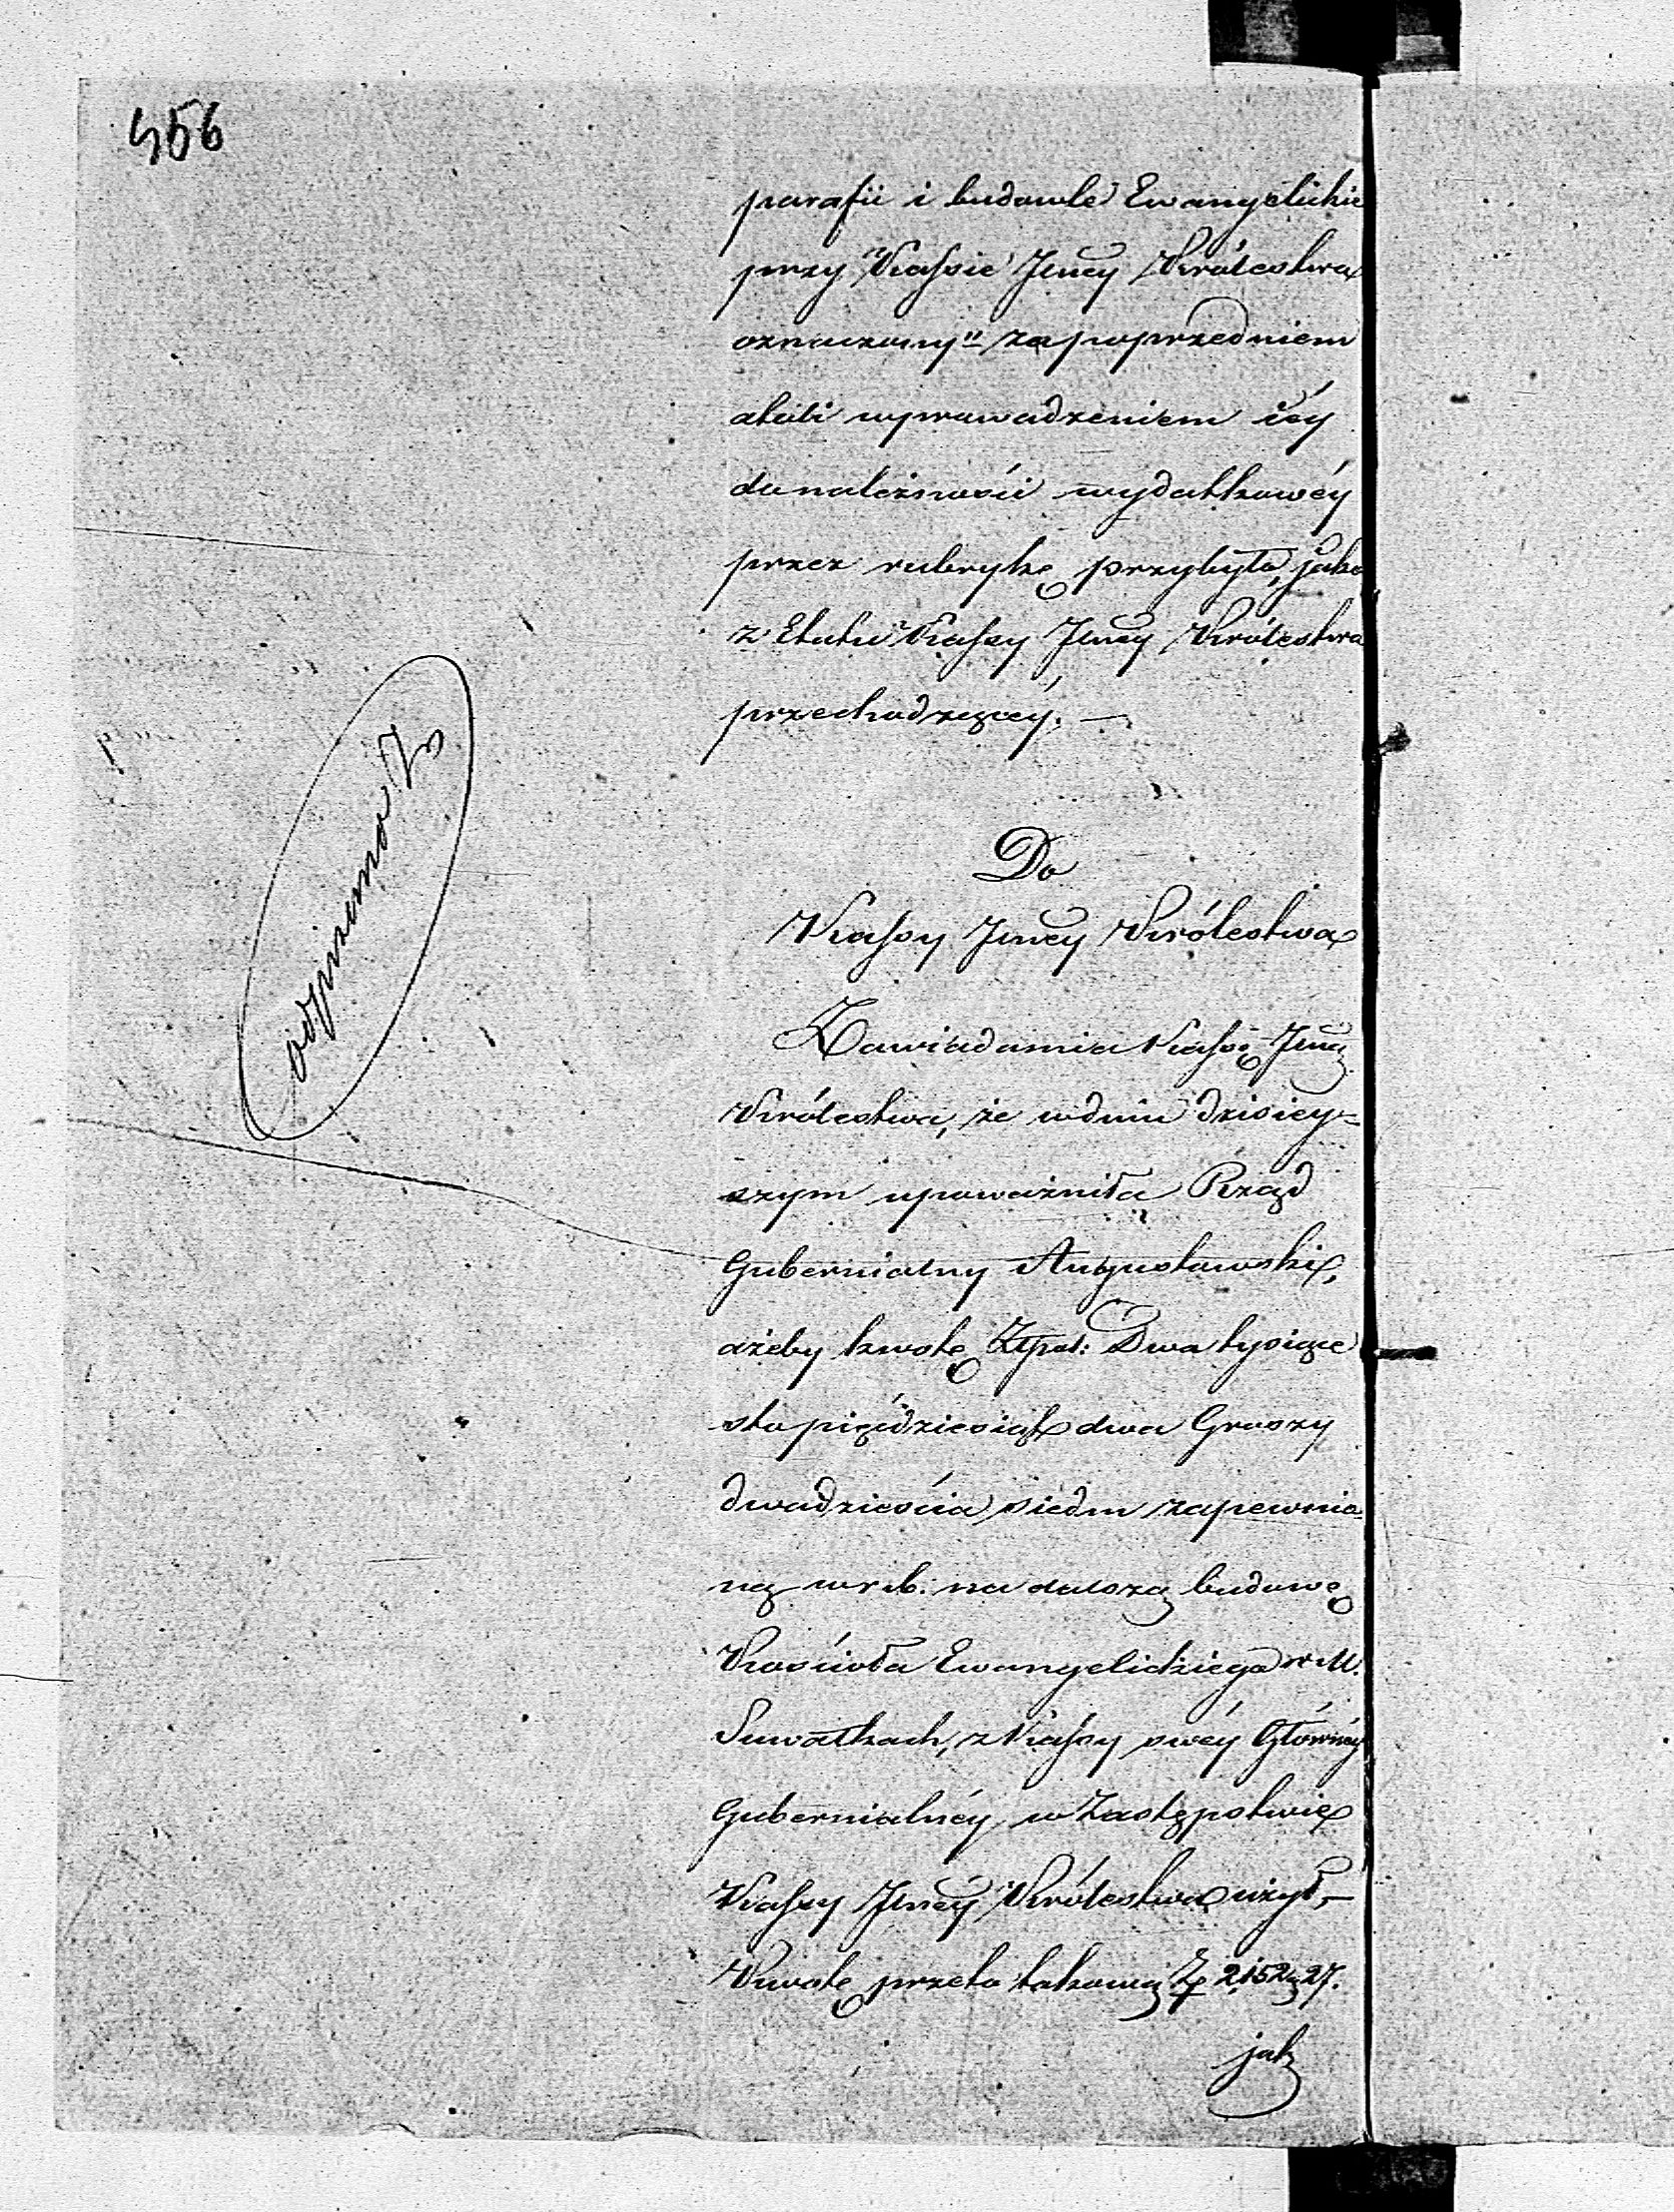 456
parafii i budowle Ewangelickie
przy Kassie Jlney Królestwa
oznaczony" za poprzedniem
atoli wprowadzeniem iéy
do należności wydatkowéy
przez rubrykę przybyło, jako
z Etatu Kassy Jlney Królestwa
przechodzącéy. —
Do
Kassy Jlney Królestwa
Zawiadamia Kassę Jlną
Królestwa, że w dniu dzisiey=
szym upoważniła Rząd
Gubernialny Augustowski,
ażeby kwotę Złpol: Dwa tysiące
sto pięćdziesiąt dwa Groszy
dwadzieścia siedm zapewnio
ną w r. b. na dalszą budowę
Kościoła Ewangelickiego w M.
Suwałkach, z Kassy swéy Głównéy
Gubernialnéy w Zastępstwie
Kassy Jlnéy Królestwa użył, —
Kwotę przeto takową Zł 2,152 g 27.
jak